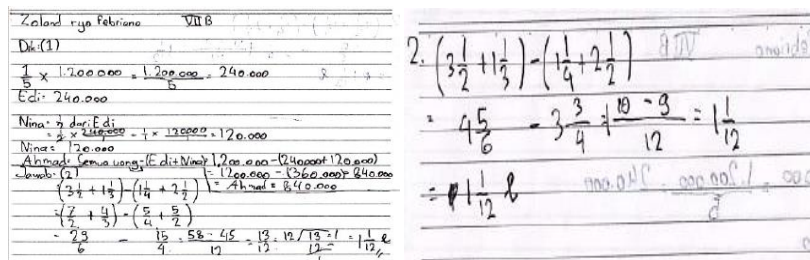 Zoland ryo Febriano VII B
Dik: (1)
1/5 x 1.200.000 = 1.200.000/5 = 240.000
Edi: 240.000
Nina: 1/2 dari Edi
= 1/2 x 240.000 = 1/1 x 120000 = 120.000
Nina = 120.000
Ahmad = Semua uang - (Edi + Nina) = 1.200.000 - (240000 + 120.000)
= 1200.000 - (360.000) = 840.000
= Ahmad = 840.000
Jawab: (2)
(3 1/2 + 1 1/3) - (1 1/4 + 2 1/2)
= (7/2 + 4/3) - (5/4 + 5/2)
= 29/6 - 15/4 = 58 - 45/12 = 13/12 = 12√13 = 1 1/12 l
2. (3 1/2 + 1 1/3) - (1 1/4 + 2 1/2)
= 4 5/6 - 3 3/4 = 1 10 - 9/12 = 1 1/12
= 1 1/12 l